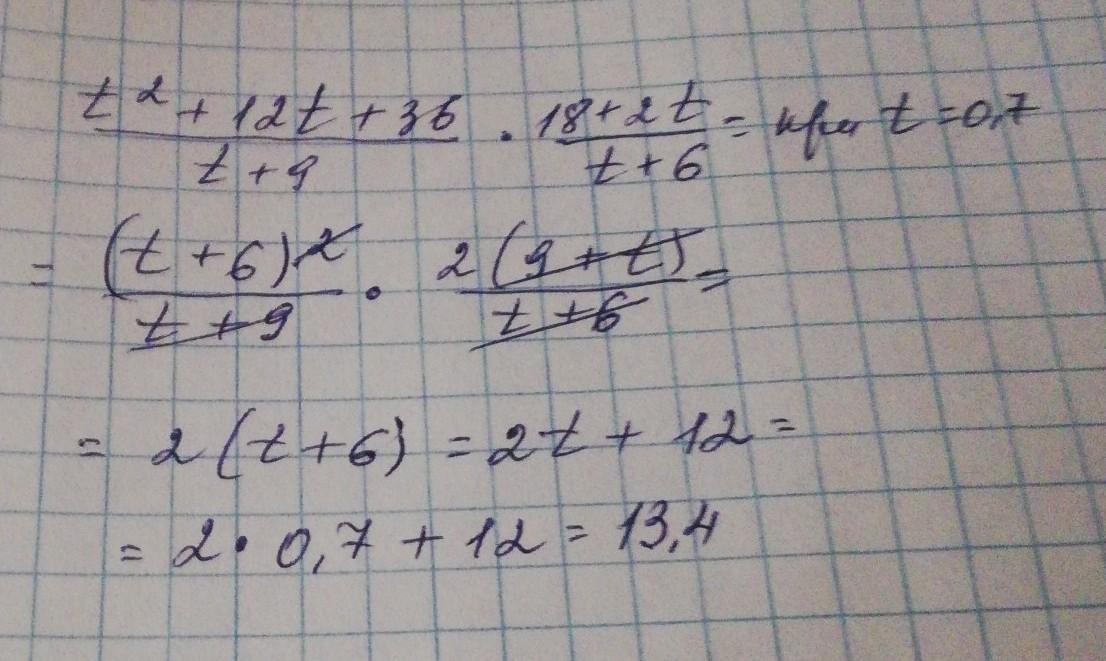 t² + 12t + 36 / t + 9 · 18 + 2t / t + 6 = при t = 0,7
= (t + 6)² / t + 9 · 2(9 + t) / t + 6 =
= 2(t + 6) = 2t + 12 =
= 2 · 0,7 + 12 = 13,4